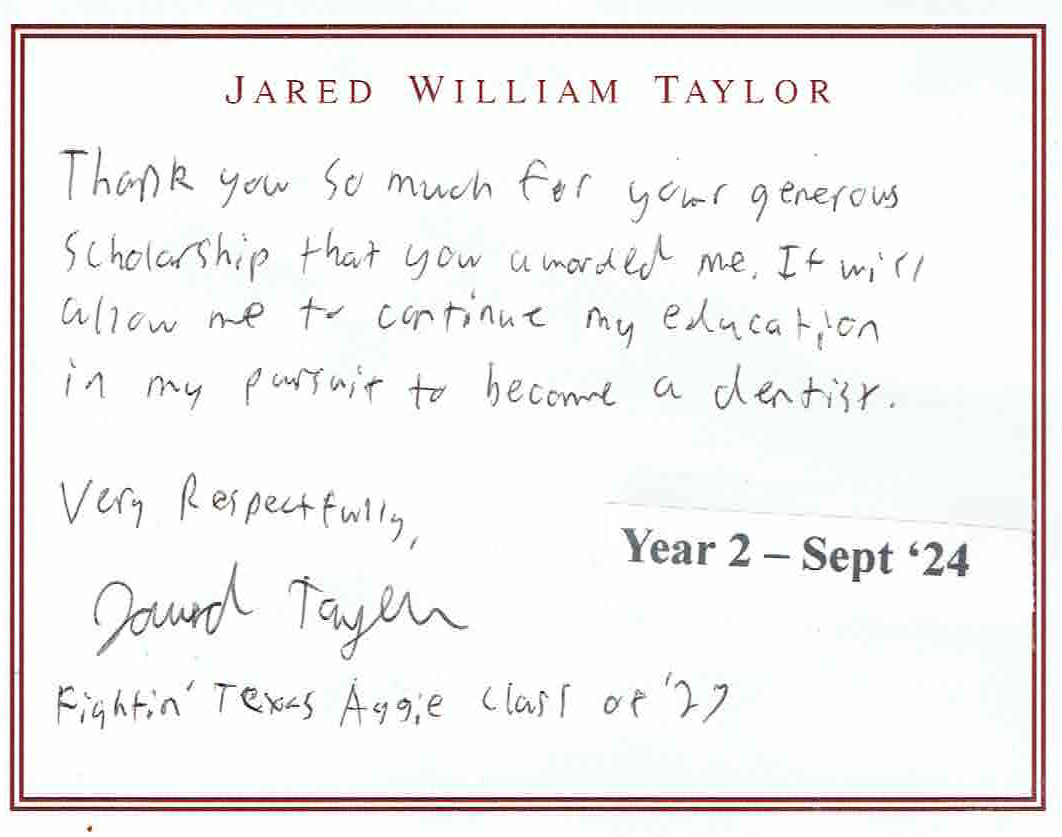 JARED WILLIAM TAYLOR
Thank you so much for your generous
scholarship that you awarded me. It will
allow me to continue my education
in my pursuit to become a dentist.
Very Respectfully,
Jared Taylor
Year 2 – Sept ‘24
Fightin' Texas Aggie Class of '27